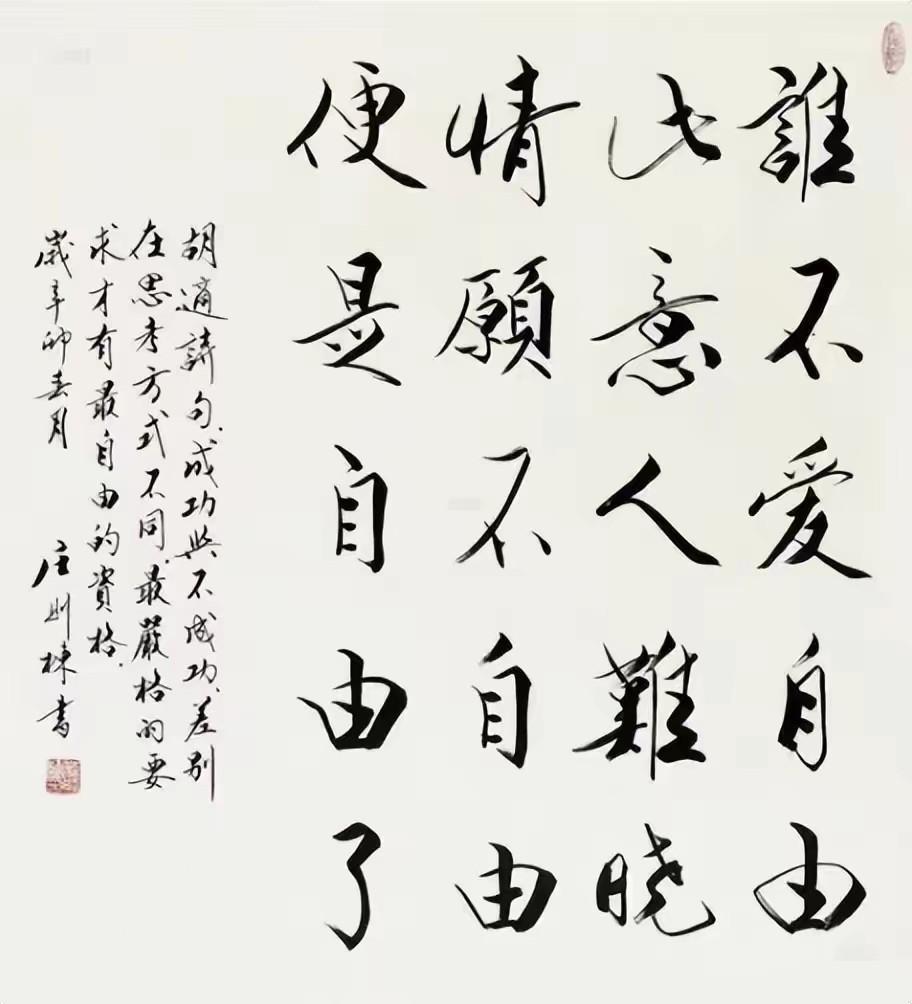 誰不愛自由
此意人難曉
情願不自由
便是自由了
胡適詩句.成功與不成功,差別
在思考方式不同.最嚴格的要
求才有最自由的資格.
歲辛卯春月 庄則棟書